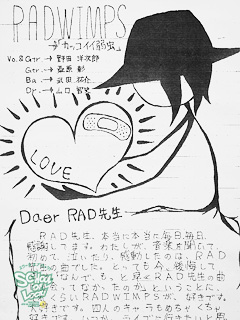 RADWIMPS
→カッコイイ弱虫
Vo.&Gtr.→野田 洋次郎
Gtr.→桑原 彰
Ba.→武田 祐介
Dr.→山口 智史
LOVE
Daer RAD先生
RAD先生、本当に本当に毎日、毎日、
感謝してます。わたしが、音楽を聞いて、
初めて、泣いたり、感動したのは、RAD
の曲でした。とっても今、後悔して
なんで、もっと早くRADの曲
なかったのか。ということに。
くらいRADWIMPSが、好きです。
大好きです。四人のキャラもめちゃくちゃ